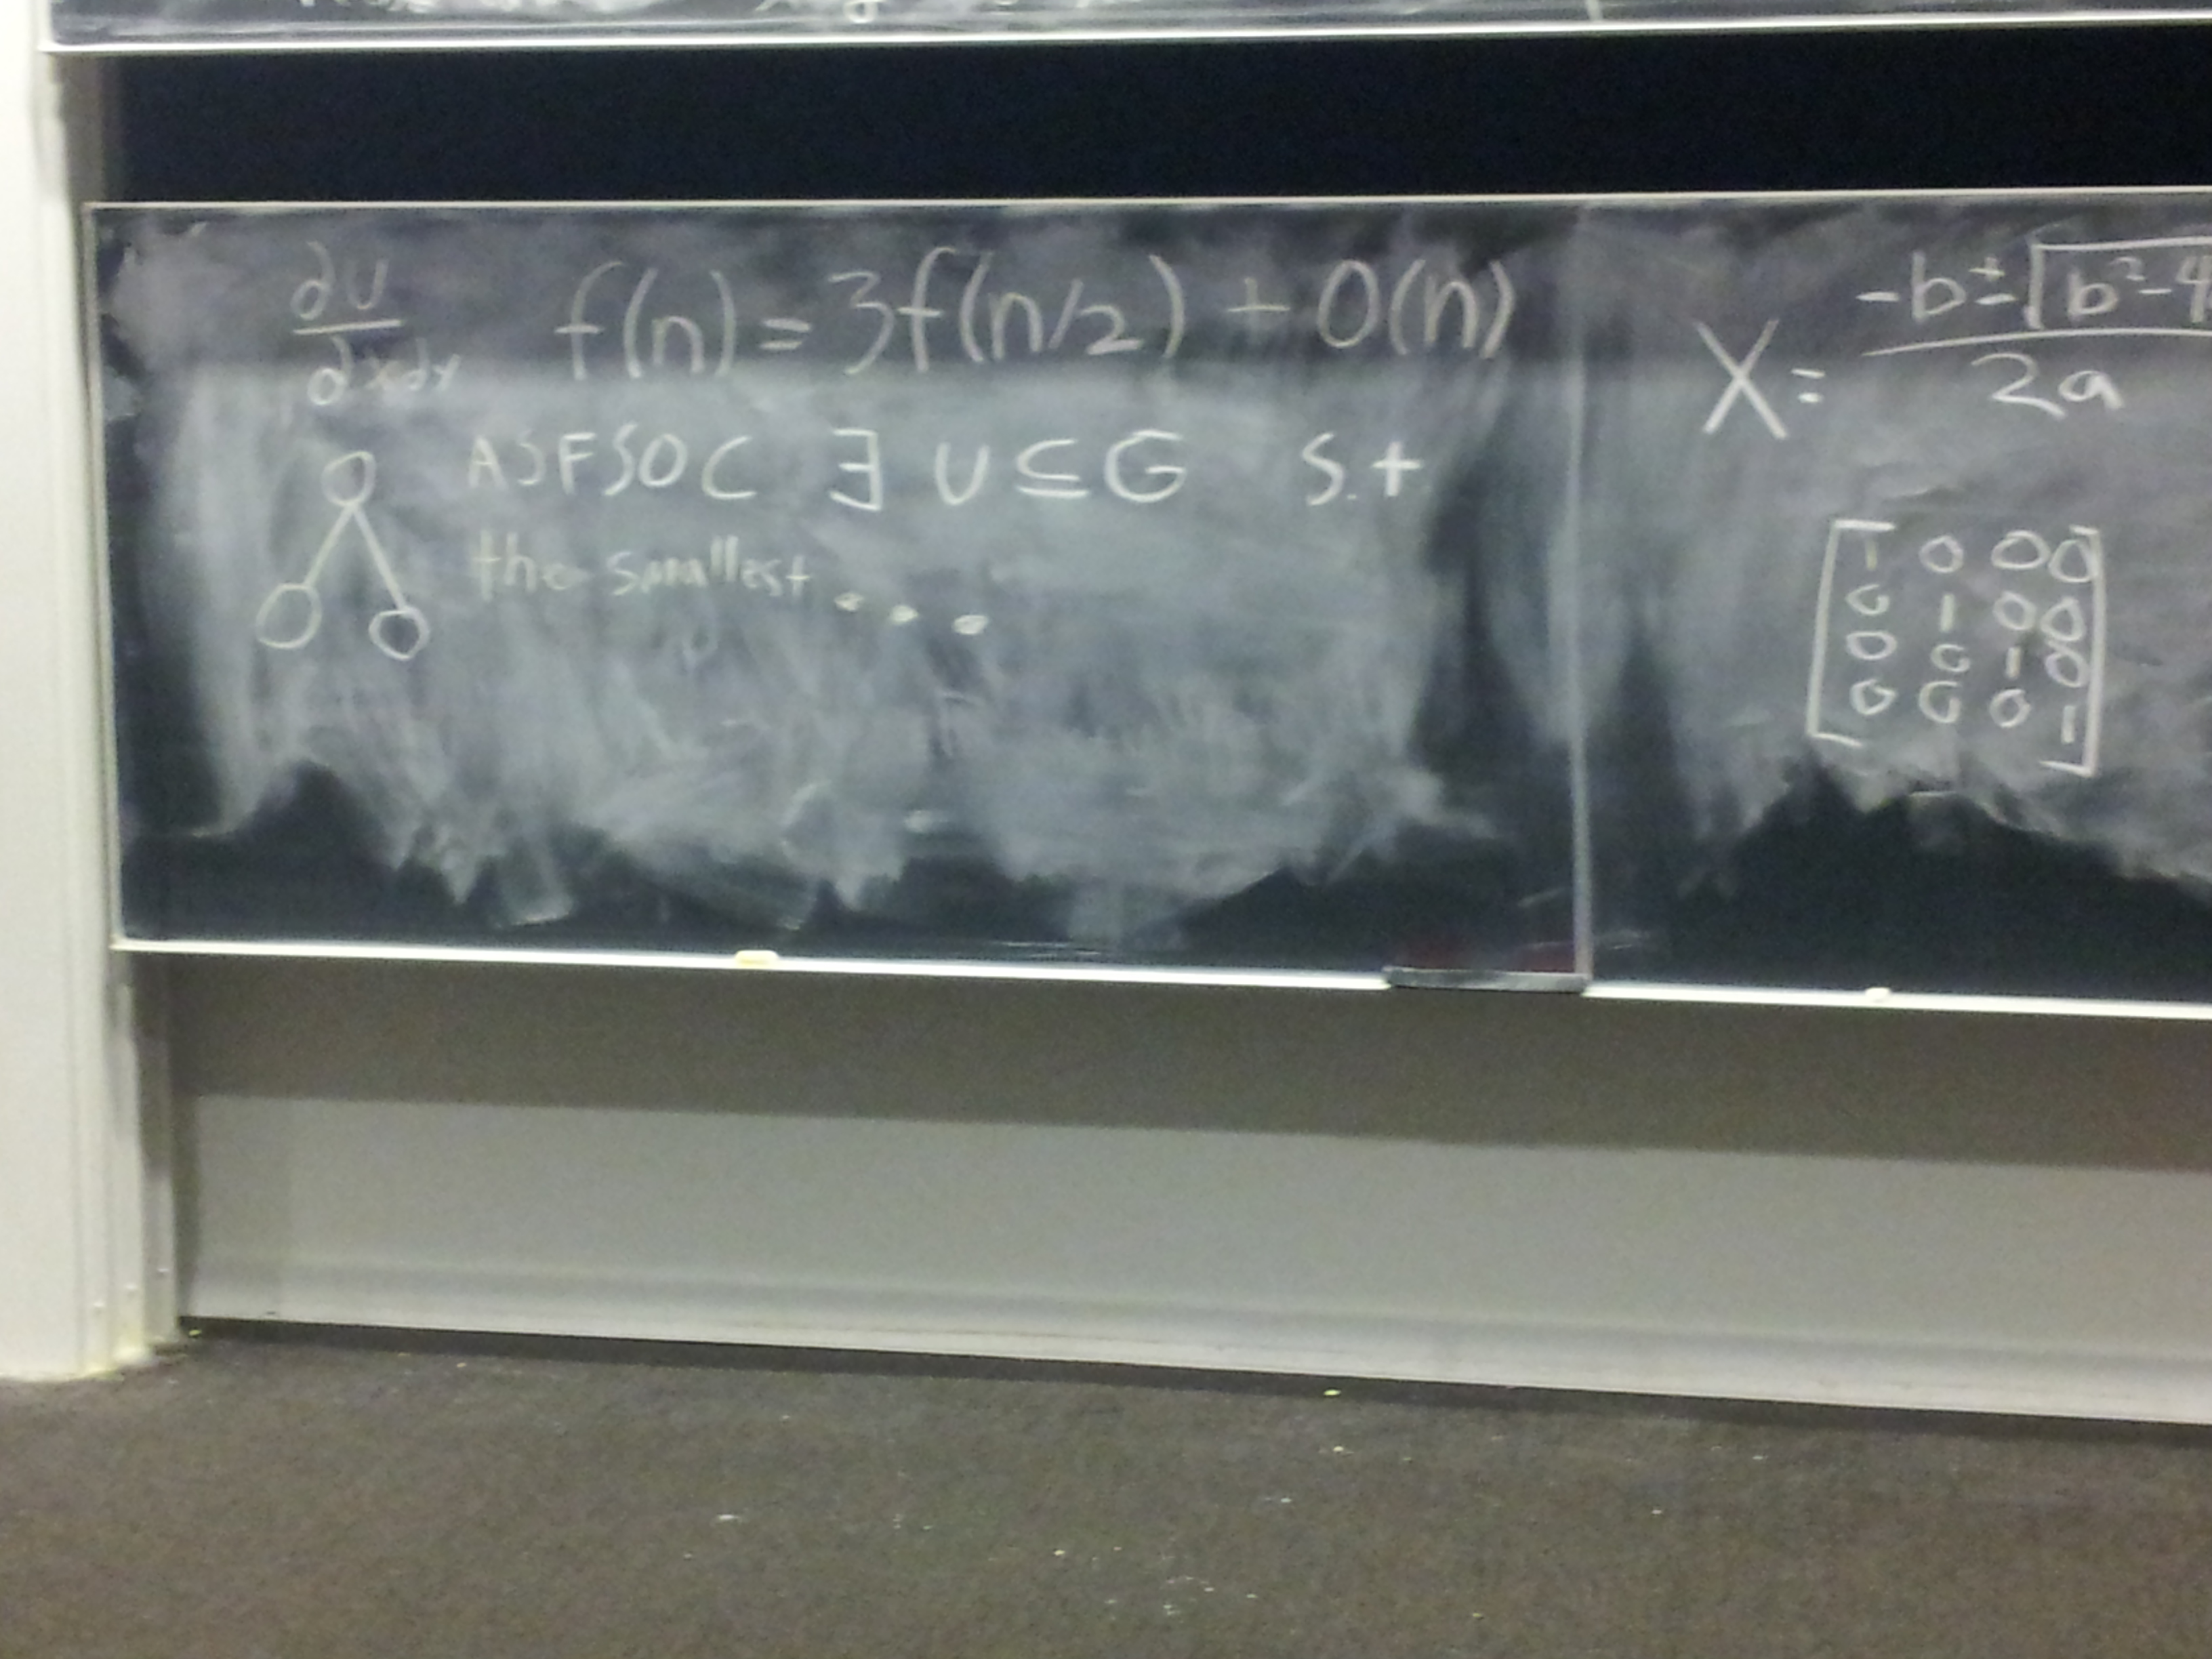 ∂U
∂x∂y
f(n) = 3f(n/2) + O(n)
ASFSOC ∃ U ⊆ G S.t
the smallest . . .
X = -b ± √b²-4
2a
1 0 0 0
0 1 0 0
0 0 1 0
0 0 0 1